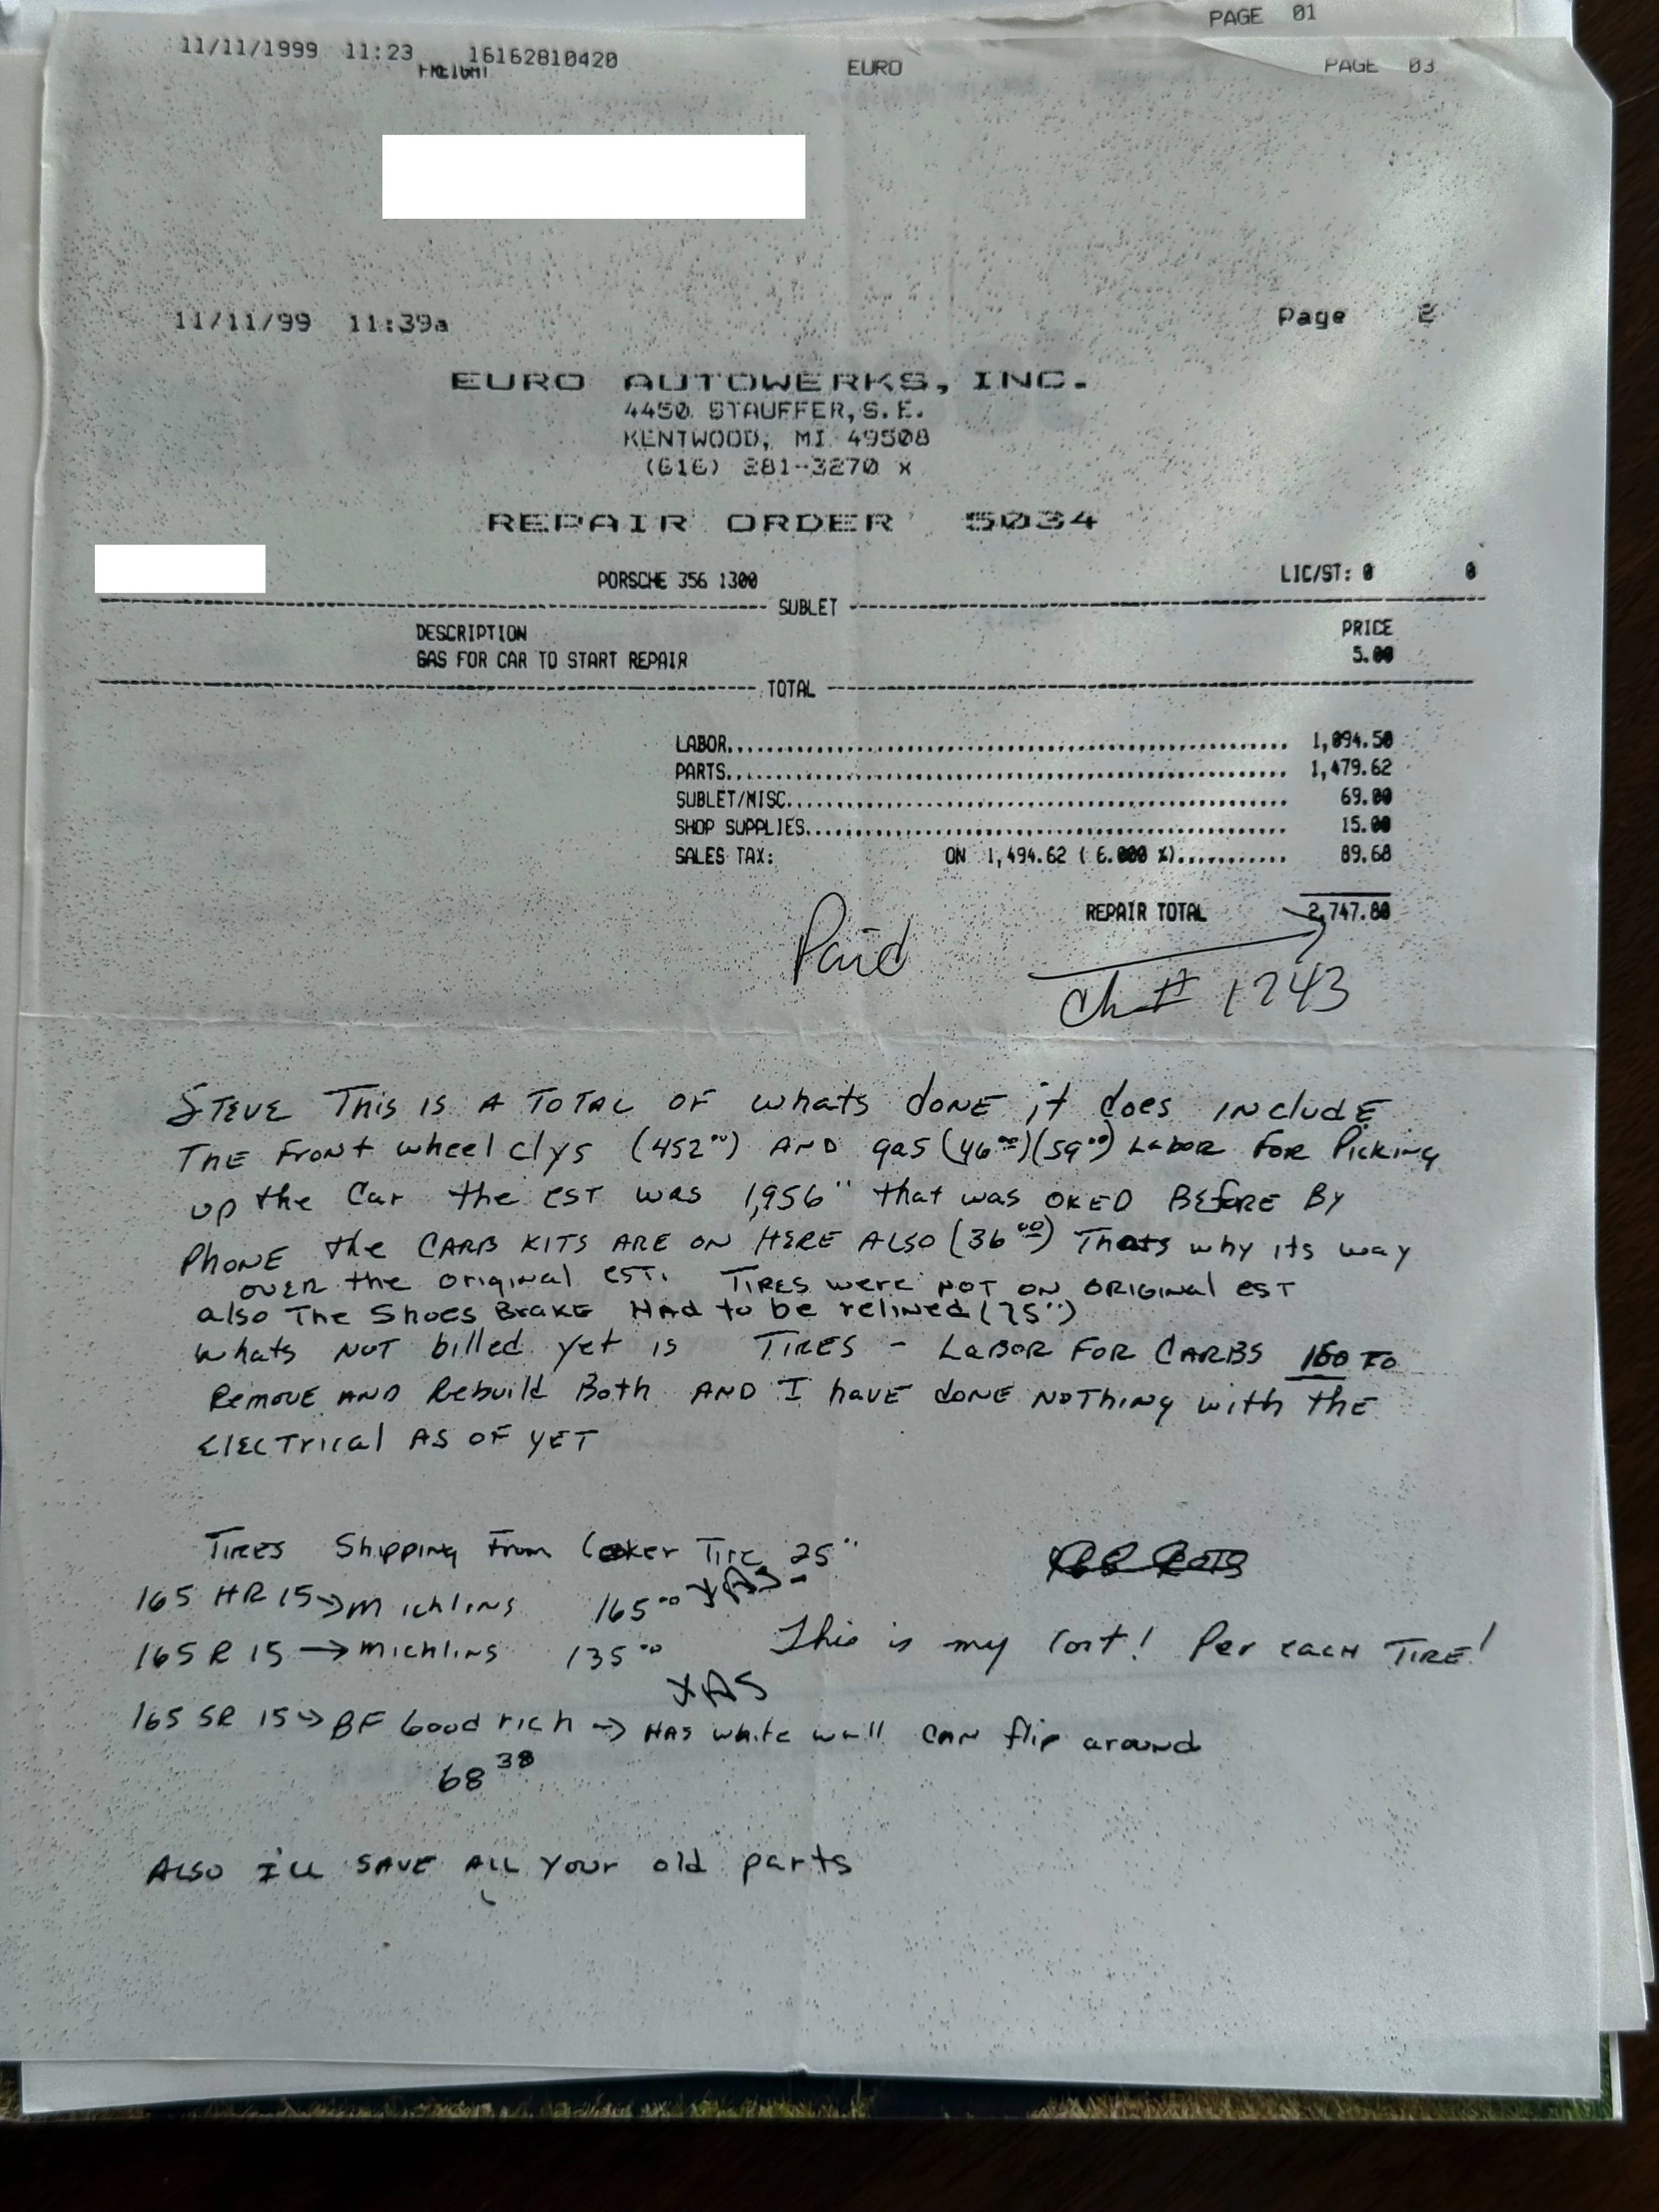 PAGE 01
11/11/1999 11:23 16162810420 EURO PAGE 03
FREIGHT
11/11/99 11:39a Page 2
EURO AUTOWERKS, INC.
4450 STAUFFER, S.E.
KENTWOOD, MI 49508
(616) 281-3270 x
REPAIR ORDER 5034
PORSCHE 356 1300 LIC/ST: 0 0
SUBLET
DESCRIPTION PRICE
GAS FOR CAR TO START REPAIR 5.00
TOTAL
LABOR 1,094.50
PARTS 1,479.62
SUBLET/MISC 69.00
SHOP SUPPLIES 15.00
SALES TAX: ON 1,494.62 ( 6.000 %) 89.68
REPAIR TOTAL 2,747.80
Paid
Ch # 1243
STEVE This is A TOTAL OF whats done it does INcludE
THE Front wheel clys (452°°) AND gas (46°°)(59°°) LABOR FOR Picking
up the Car the EST was 1,956°° that was OKED BEfORE BY
PHONE the CARB KITS ARE ON HERE ALSO (36°°) Thats why its way
over the original EST. TIRES were NOT ON ORIGINAL EST
also The Shoes BRAKE HAd to be relined (75°°)
whats NOT billed yet is TIRES - LABOR FOR CARBS 160 TO
REMOVE AND Rebuild Both AND I have done NOTHing with the
ElECTrical AS OF YET
TIRES Shipping From Coker Tire 25°°
165 HR 15 → Michlins 165°° XAS
165 R 15 → Michlins 135°° This is my Cost! Per EACH TIRE!
XAS
165 SR 15 → BF Goodrich → HAS white wall CAN flip around
68 38
ALSO I'll SAVE ALL Your old parts